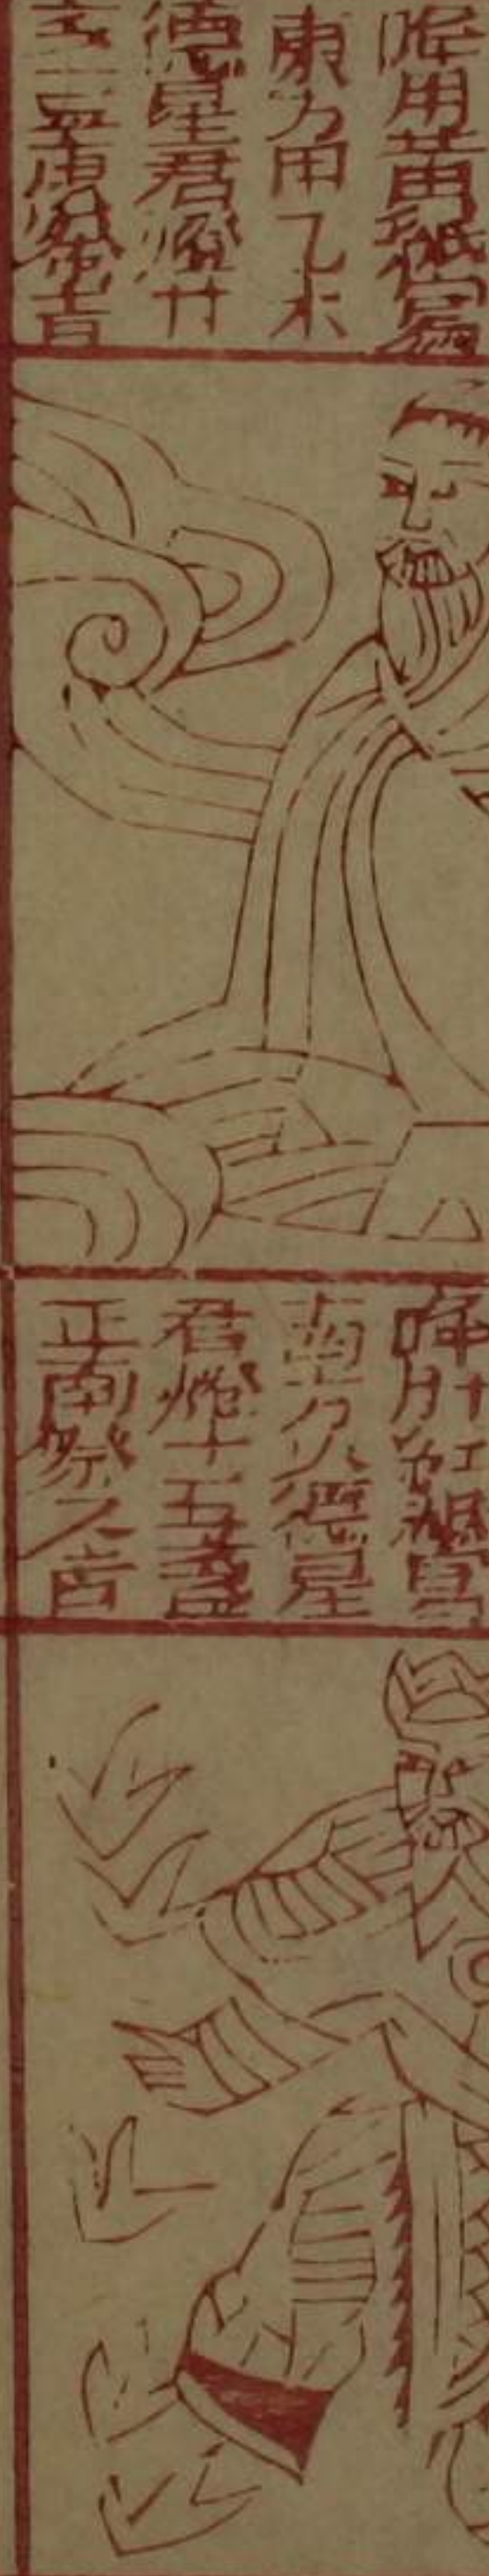 用黄紙寫
東方甲乙木
德星君燈廿
吉
紅紙寫
南方火德星
君燈十五盞
正南祭之吉